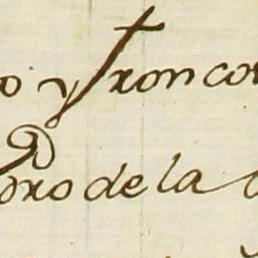 o y Troncon
oro de la